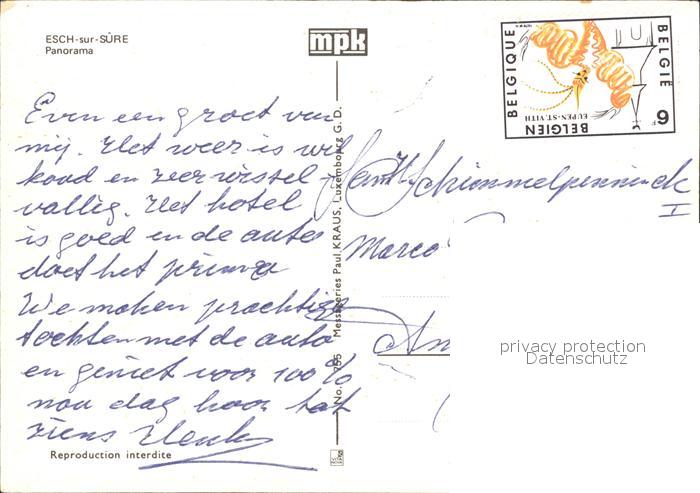 ESCH-sur-SÛRE
Panorama
mpk
BELGIQUE
BELGIE
BELGIEN
EUPEN-ST. VITH
6F
Even een groet van
mij. Het weer is wel
koud en zeer wissel-
vallig. Het hotel
is goed en de auto
doet het prima
We maken prachtige
tochten met de auto
en geniet voor 100%
nou dag hoor tot
ziens Henk
Schimmelpenninck
I
Marco
An
No. 755 Messageries Paul KRAUS, Luxembourg G. D.
Reproduction interdite
privacy protection
Datenschutz